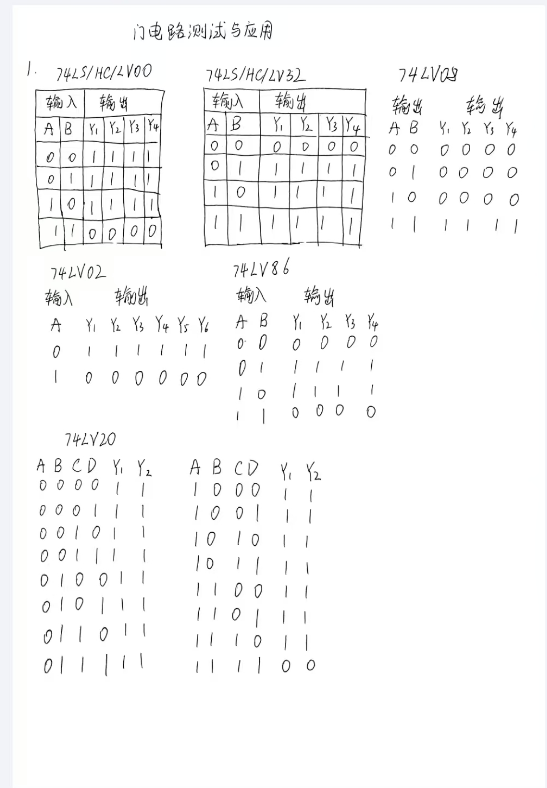 门电路测试与应用
1. 74LS/HC/LV00
输入 输出
A B Y1 Y2 Y3 Y4
0 0 1 1 1 1
0 1 1 1 1 1
1 0 1 1 1 1
1 1 0 0 0 0
74LS/HC/LV32
输入 输出
A B Y1 Y2 Y3 Y4
0 0 0 0 0 0
0 1 1 1 1 1
1 0 1 1 1 1
1 1 1 1 1 1
74LV08
输出 输出
A B Y1 Y2 Y3 Y4
0 0 0 0 0 0
0 1 0 0 0 0
1 0 0 0 0 0
1 1 1 1 1 1
74LV02
输入 输出
A Y1 Y2 Y3 Y4 Y5 Y6
0 1 1 1 1 1 1
1 0 0 0 0 0 0
74LV86
输入 输出
A B Y1 Y2 Y3 Y4
0 0 0 0 0 0
0 1 1 1 1 1
1 0 1 1 1 1
1 1 0 0 0 0
74LV20
A B C D Y1 Y2
0 0 0 0 1 1
0 0 0 1 1 1
0 0 1 0 1 1
0 0 1 1 1 1
0 1 0 0 1 1
0 1 0 1 1 1
0 1 1 0 1 1
0 1 1 1 1 1
A B C D Y1 Y2
1 0 0 0 1 1
1 0 0 1 1 1
1 0 1 0 1 1
1 0 1 1 1 1
1 1 0 0 1 1
1 1 0 1 1 1
1 1 1 0 1 1
1 1 1 1 0 0